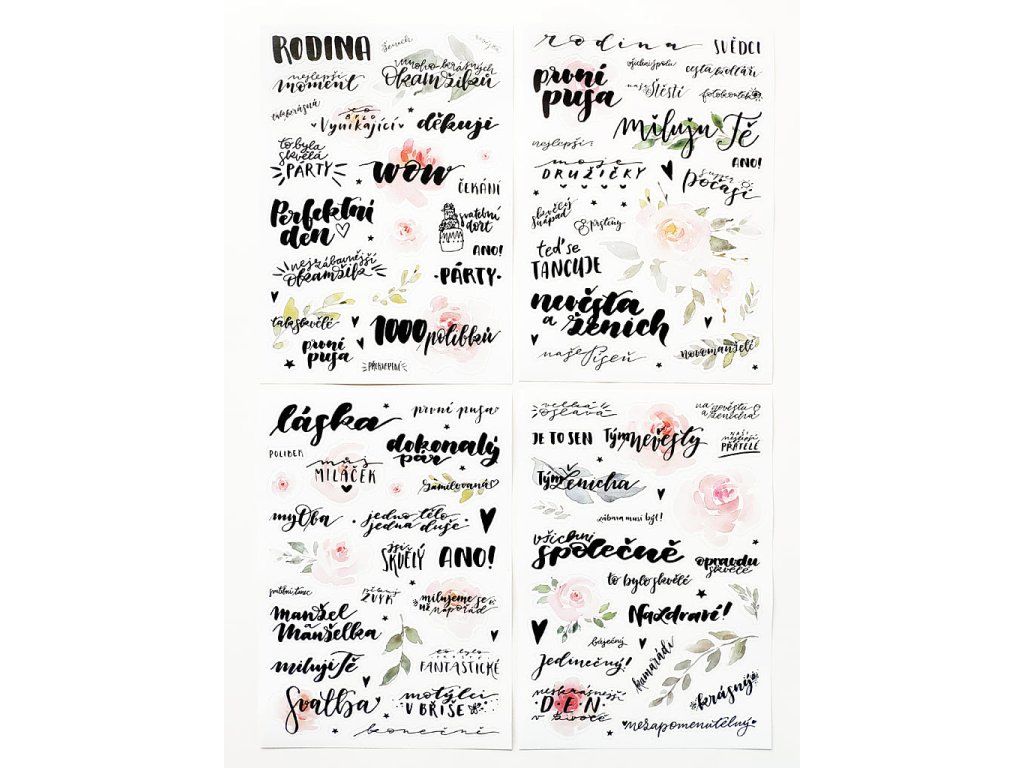 RODINA
ženich
nejlepší
moment
mnoho krásných
okamžiků
to
BYLO
vynikající
děkuji
to byla
skvělá
PÁRTY
wow
ČEKÁNÍ
Perfektní
den
svatební
dort
ANO!
nejzábavnější
okamžik
PÁRTY
tak skvělé
1000 polibků
první
pusa
PŘEKVAPENÍ
rodina
SVĚDCI
první
pusa
všichni spolu
cesta k oltáři
naše štěstí
fotokoutek
miluju Tě
nejlepší
ANO!
moje
DRUŽIČKY
super
počasí
skvělý
nápad
prsteny
teď se
TANCUJE
nevěsta
a ženich
naše píseň
novomanželé
láska
první pusa
dokonalý
pár
POLIBEK
můj
MILÁČEK
zamilovaná
my Oba
jedno tělo
jedna duše
jsi
SKVĚLÝ
ANO!
svatební tanec
ZVYK
milujeme se
už napořád
Manžel
a
Manželka
miluji Tě
to bylo
prostě
FANTASTICKÉ
Svatba
motýlci
V BŘIŠE
konečně
velká
oslava
na nevěstu
a ženicha
JE TO SEN
Tým nevěsty
NAŠI
nejlepší
PŘÁTELÉ
Tým ženicha
zábava musí být!
všichni
společně
opravdu
skvělé
to bylo skvělé
Nazdraví!
báječný
Jedinečný!
kamarádi
nejkrásnější
DEN
v životě
krásný
nezapomenutelný